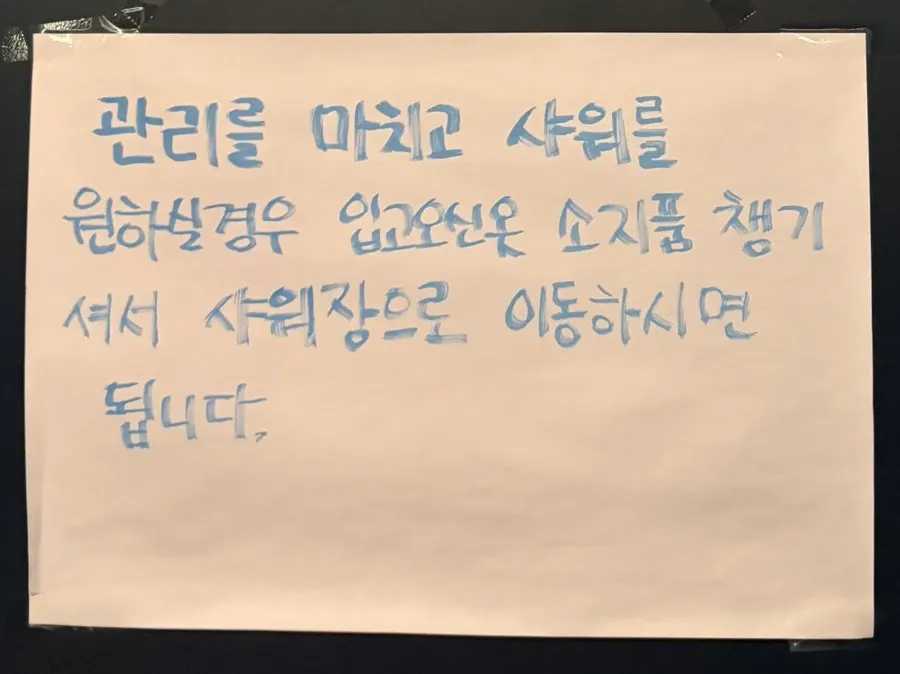 관리를 마치고 샤워를
원하실경우 입고오신옷 소지품 챙기
셔서 샤워장으로 이동하시면
됩니다.